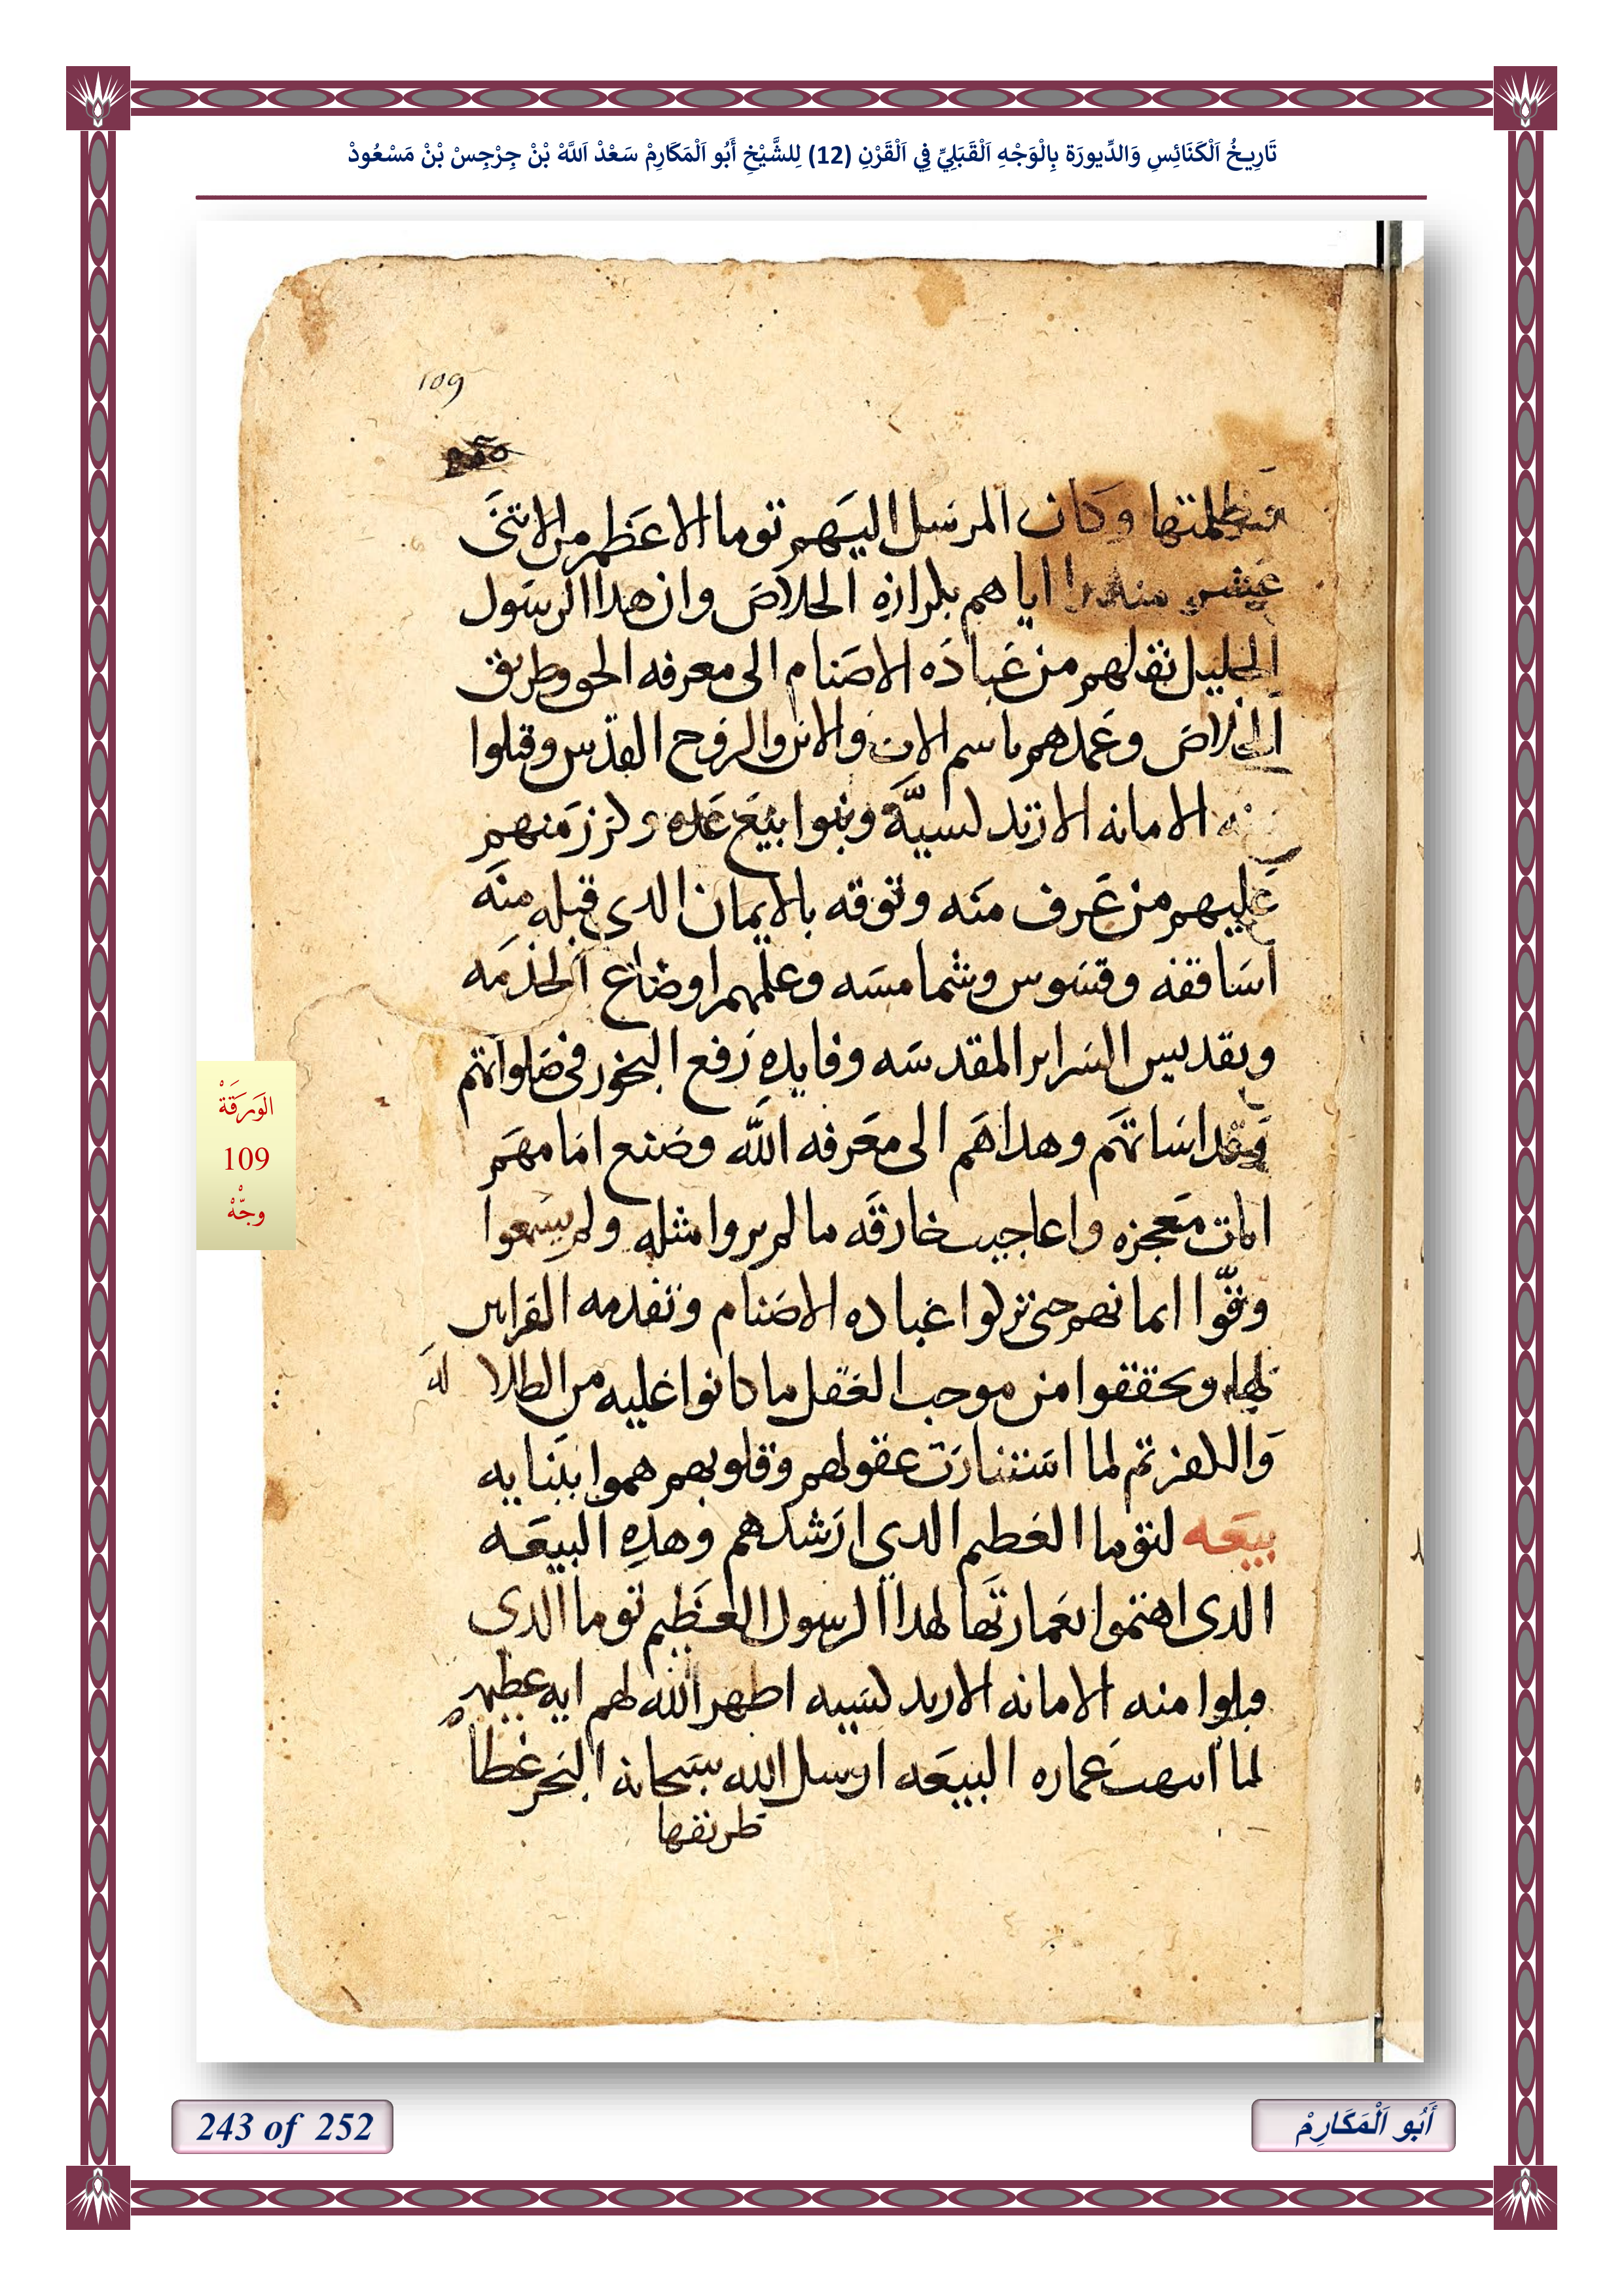 تَارِيخُ اَلْكَنَائِسِ وَالدِّيورَة بِالْوَجْهِ اَلْقَبَلِيِّ فِي اَلْقَرْنِ (12) لِلشَّيْخِ أَبُو اَلْمَكَارِمْ سَعْدْ اَللَّهْ بْنْ جِرْجِسْ بْنْ مَسْعُودْ
109
وكان المرسل اليهم توما الاعظم من الاتنى
عشر اياهم بكرازه الخلاص وان هدا الرسول
الجليل نقلهم من عباده الاصنام الى معرفه الحق وطريق
الخلاص وعمدهم باسم الاب والابن والروح القدس وقبلوا
منه الامانه الارتدلسيَّة وبنوا بيع عده وكرز منهم
عليهم من عرف منه وتوقه بالايمان الدى قبله منه
اساقفه وقسوس وشمامسه وعلمهم اوضاع الخدمه
وتقديس السراير المقدسه وفايده رفع البخور فى صلواتهم
وقداساتهم وهداهم الى معرفه الله وصنع امامهم
ايات معجزه واعاجيب خارقه ما لم يروا مثله ولم يسمعوا
وقوّا ايمانهم حتى تركوا عباده الاصنام وتقدمه القرابين
لها وتحققوا من موجب العقل ما كانوا عليه من الطلا له
والكفر تم لما استنارت عقولهم وقلوبهم هموا ببنايه
بيعه لتوما العظيم الدى ارشدهم وهده البيعه
الدى اهتموا بعمارتها لهدا الرسول العظيم توما الدى
قبلوا منه الامانه الارتدلسيه اظهر الله لهم ايه عظيمه
لما انتهت عماره البيعه ارسل الله سبحانه البحر غطا
طريقها
الوَرَقَةْ
109
وجّهْ
243 of 252
أَبُو اَلْمَكَارِمْ